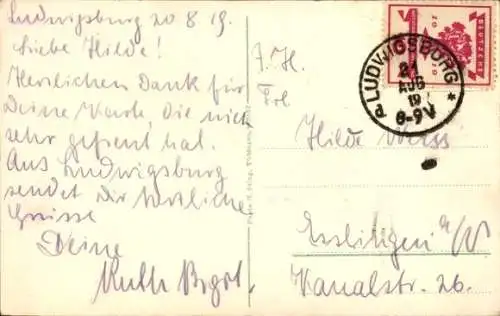 Ludwigsburg 20 8 19.
Liebe Hilde!
Herzlichen Dank für
Deine Karte, die mich
sehr gefreut hat.
Aus Ludwigsburg
sendet Dir herzliche
Grüsse
Deine
Ruth
LUDWIGSBURG
21
AUG
19
8-9V
Frl.
Hilde
Esslingen a/N
Kanalstr. 26.